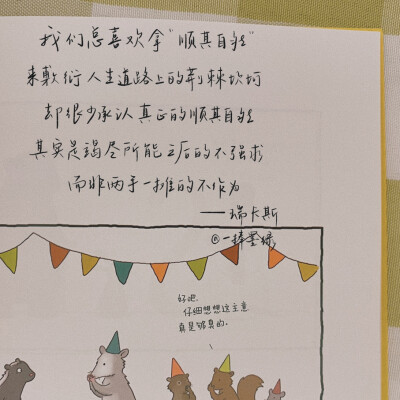 我们总喜欢拿“顺其自然”
来敷衍人生道路上的荆棘坎坷
却很少承认真正的顺其自然
其实是竭尽所能之后的不强求
而非两手一摊的不作为
——瑞卡斯
@一捧墨绿
好吧，
仔细想想这主意
真是够臭的。